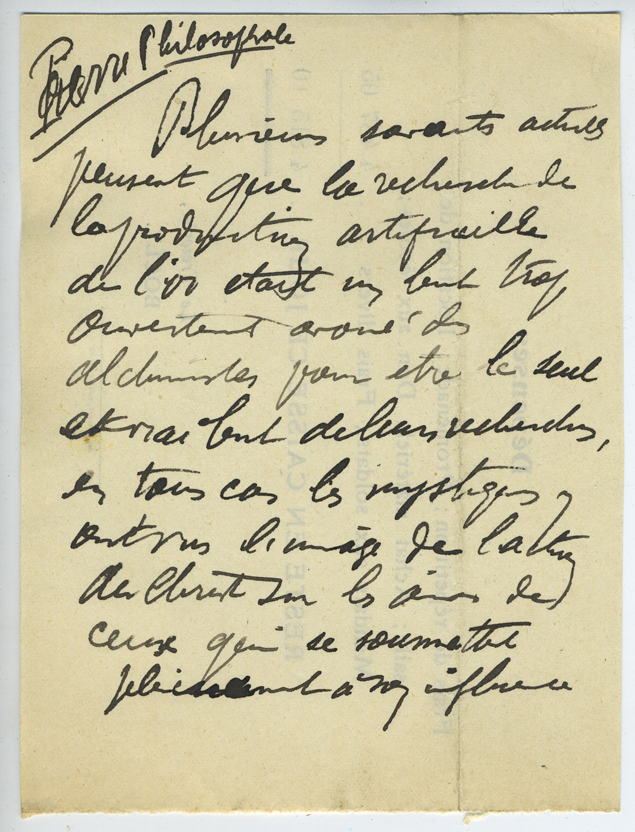 Pierre Philosophale
Plusieurs savants actuels
pensent que la recherche de
la production artificielle
de l'or etait un but trop
ouvertement avoué des
alchimistes pour etre le seul
et vrai but de leurs recherches,
en tous cas les mystiques y
ont vu l'image de l'action
du Christ sur les âmes de
ceux qui se soumettent
pleinement à son influence